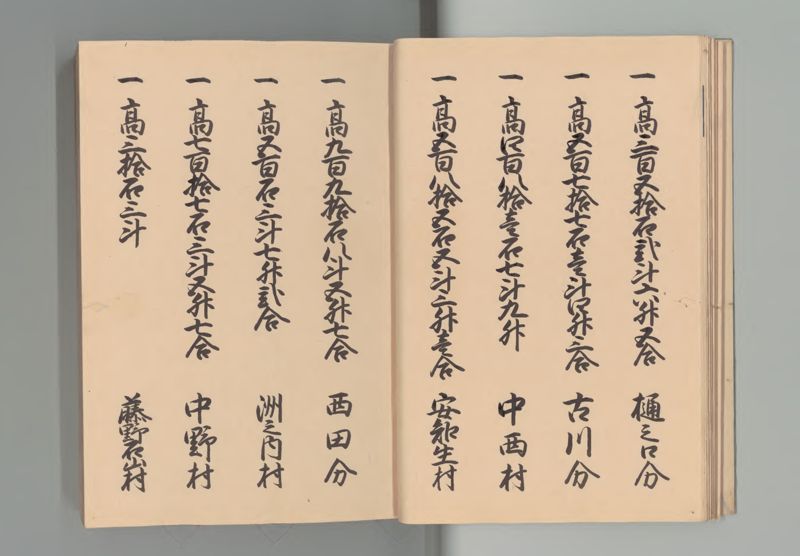 一 高三百五拾石弐斗六升五合 樋之口分
一 高五百七拾七石壱斗四升三合 古川分
一 高四百八拾壱石七斗九升 中西村
一 高五百八拾五石五斗三升壱合 安知生村
一 高九百九拾石八斗五升七合 西田分
一 高五百石三斗七升弐合 洲之内村
一 高七百拾七石三斗五升七合 中野村
一 高三拾石三斗 藤野石山村